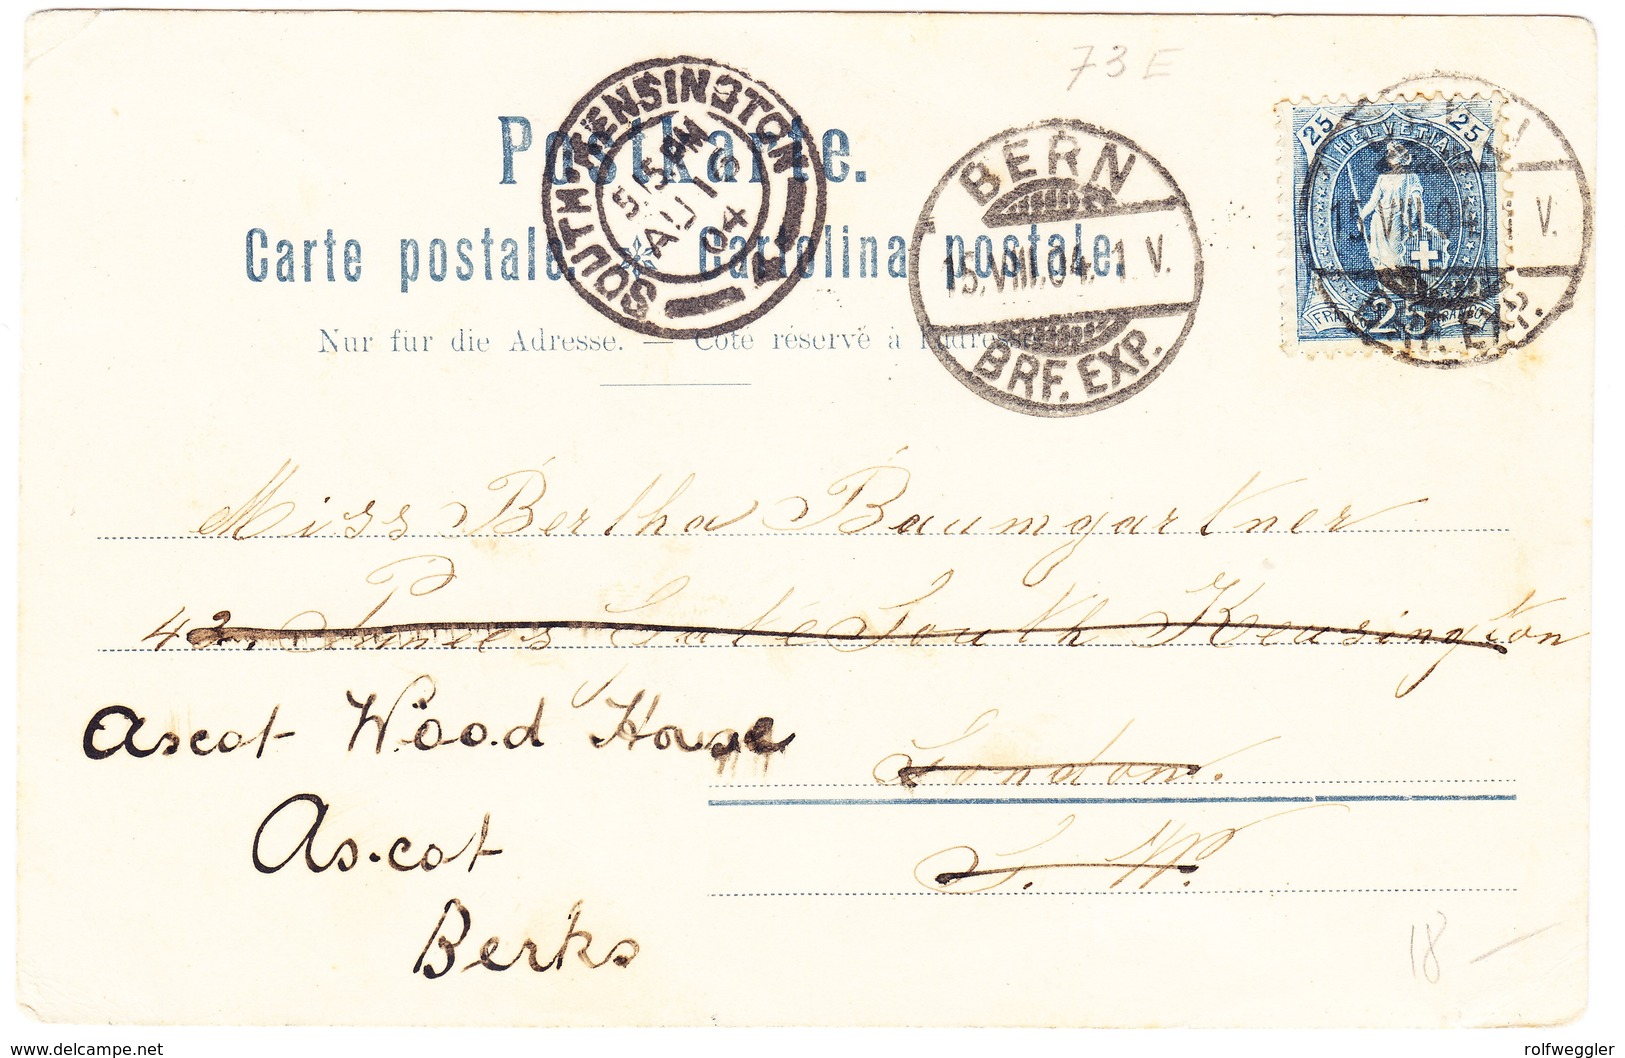 73E
Postkarte.
Carte postale. — Cartolina postale.
Nur für die Adresse. — Côté réservé à l'adresse.
SOUTH KENSINGTON
5.15 PM
AU 16
04
BERN
15.VIII.04. 1 V.
BRF. EXP.
25 HELVETIA 25
FRANCO 25 FRANCO
15.VIII.04. 1 V.
BRF. EXP.
Miss Bertha Baumgartner
42. Princes Gate South Kensington
Ascot Wood House
London.
Ascot
S. W.
Berks
18 —
www.delcampe.net
rolfweggler